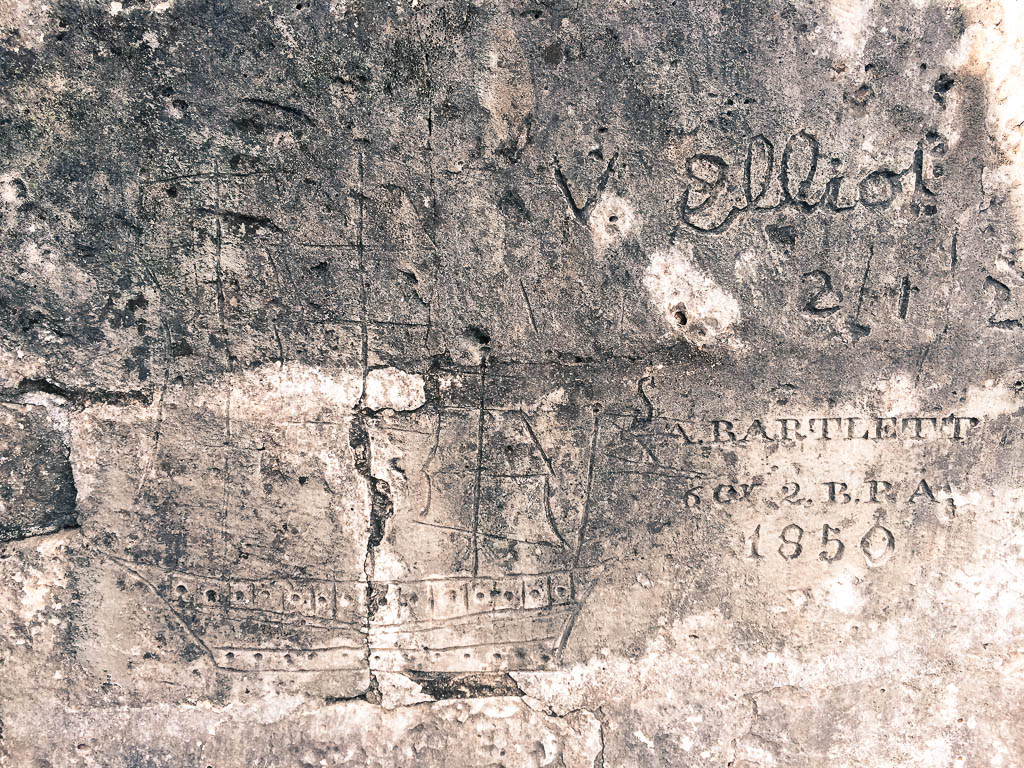 V Elliot
2/1 2
A. BARTLETT
6 Oy 2. B. R A.
1850